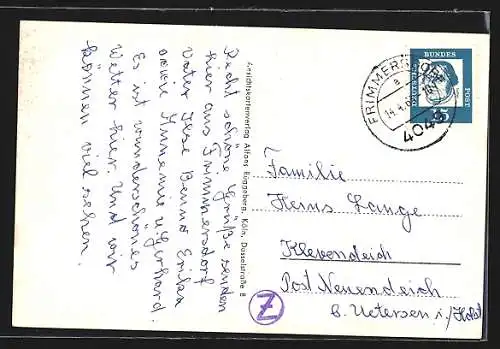 Recht schöne Grüße senden
hier aus Frimmersdorf
Vater Ilse Benno Erika
sowie Annemie u. Gerhard.
Es ist wunderschönes
Wetter hier. Und wir
können viel sehen.
Ansichtskartenverlag Alfons Rüggeberg, Köln, Düsselstraße 8
FRIMMERSDORF
a
4049
BUNDES
POST
15
Familie
Heins Lange
Klevendeich
Post Neuendeich
b. Uetersen i./Holst
Z